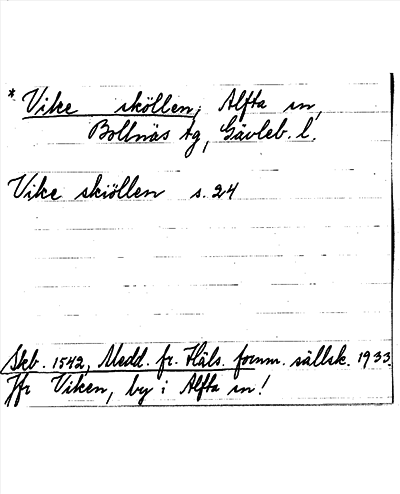 * Vike sköllen, Alfta sn,
Bollnäs tg, Gävleb. l.
Vike skiöllen s. 24
Skb. 1542, Medd. fr. Häls. fornm. sällsk. 1933.
Jfr Viken, by i Alfta sn!